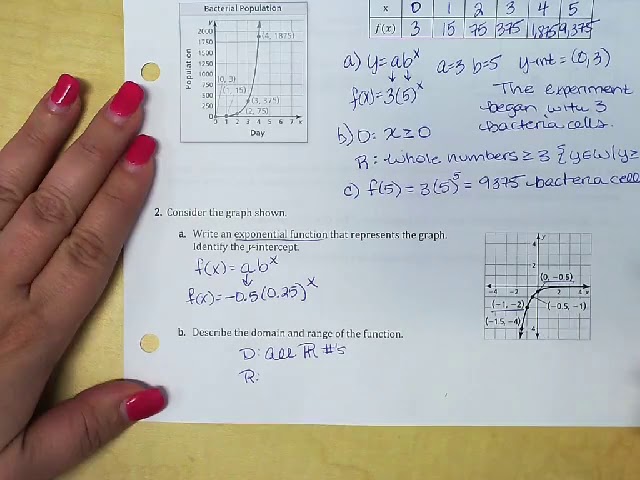 Bacterial Population
Population
y
2000
1750
1500
1250
1000
750
500
250
0
(4, 1875)
(0, 3)
(1, 15)
(3, 375)
(2, 75)
1 2 3 4 5 6 7 x
Day
x 0 1 2 3 4 5
f(x) 3 15 75 375 1,875 9,375
a) y=abˣ a=3 b=5 y-int = (0,3)
f(x)=3(5)ˣ
The experiment
began with 3
bacteria cells.
b) D: x ≥ 0
R: whole numbers ≥ 3 {y∈W|y≥
c) f(5) = 3(5)⁵ = 9375 bacteria cell
2. Consider the graph shown.
a. Write an exponential function that represents the graph.
Identify the y-intercept.
f(x) = abˣ
f(x) = -0.5(0.25)ˣ
b. Describe the domain and range of the function.
D: all ℝ #'s
R:
y
4
2
(0, −0.5)
−4 −2 2 4 x
(−1, −2)
(−0.5, −1)
(−1.5, −4)
−4